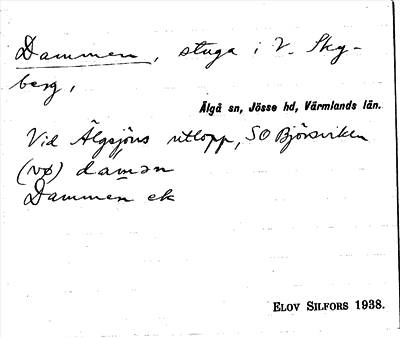 Dammen, stuga i V. Sky-
berg,
Älgå sn, Jösse hd, Värmlands län.
Vid Älgsjöns utlopp, SO Björsviken
(vø) damən
Dammen ek
ELOV SILFORS 1938.